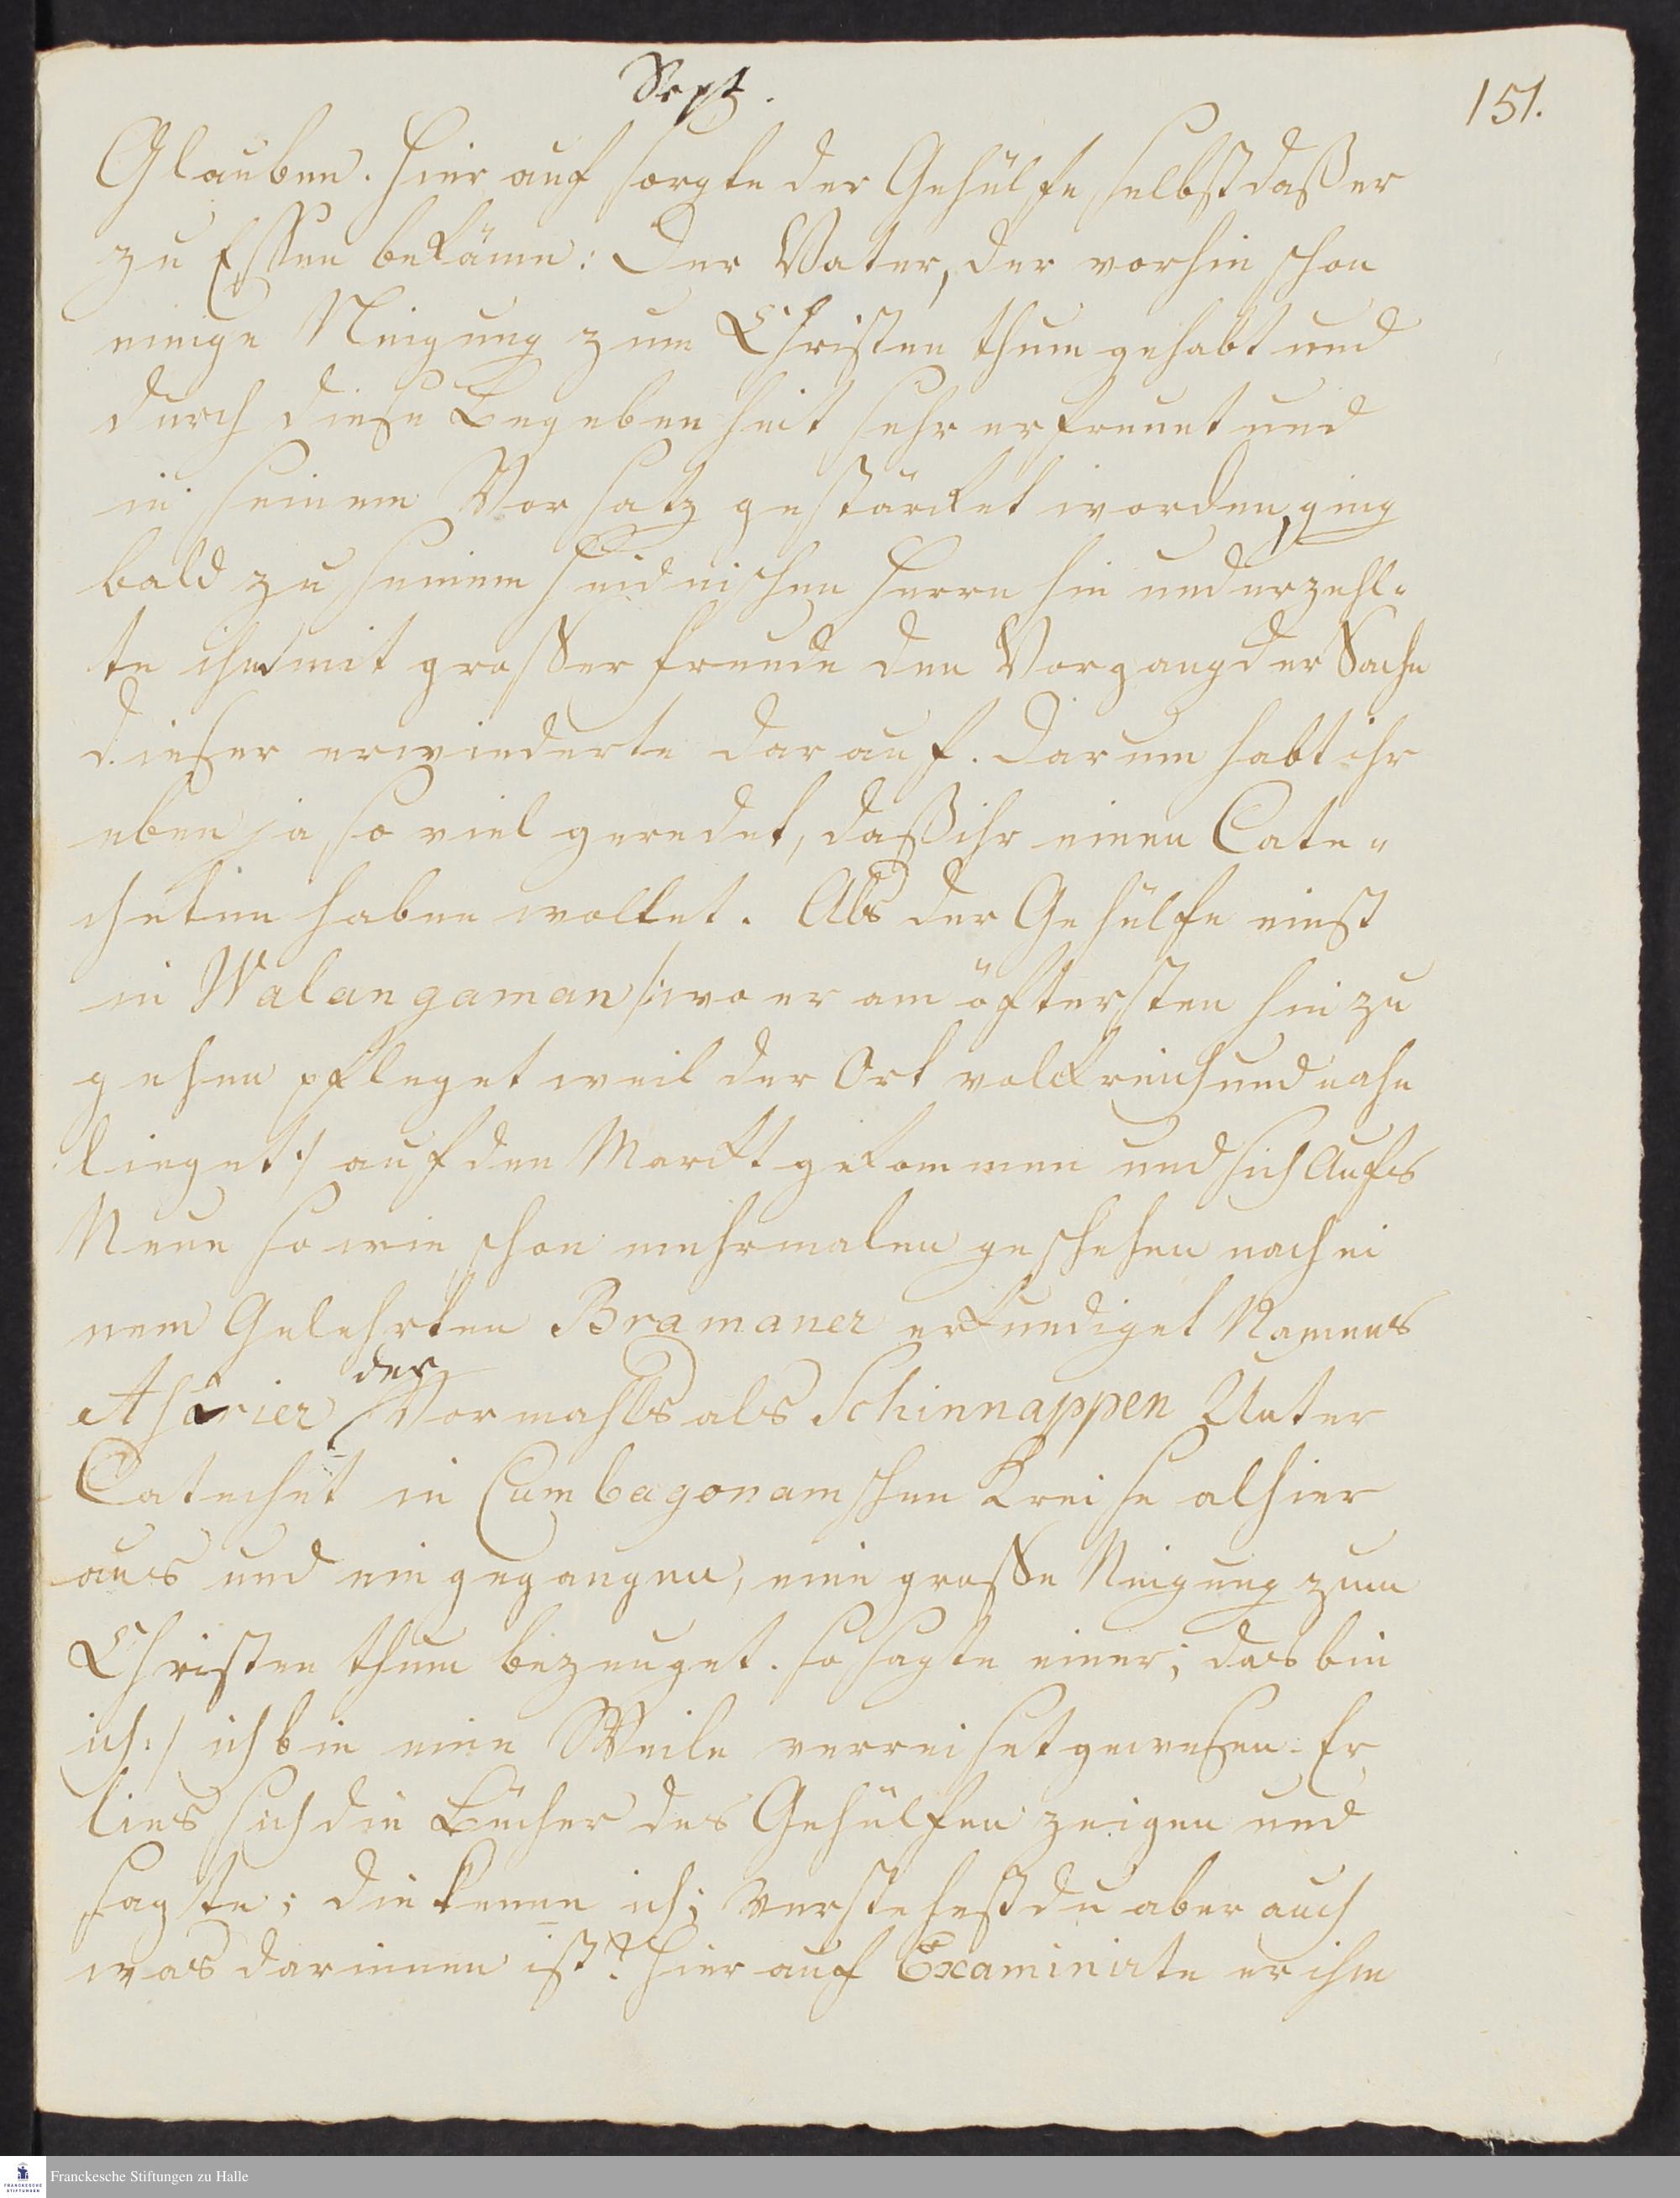 Sept.
151.
Glauben. Hier auf sorgte der Gehülfe selbst daß er
zu Essen bekäme: Der Vater, der vorhin schon
einige Neigung zum Christen thum gehabt und
durch diese Begeben heit sehr erfreuet und
in seinem Vor satz gestärket worden, ging
bald zu seinem heidnischen Herrn hin und erzehl-
te ihm mit grosser Freude den Vorgang der Sache
dieser erwiederte dar auf. Darum habt ihr
eben ja so viel geredet, daß ihr einen Cate-
cheten haben wollet. Als der Gehülfe einst
in Walangaman /: wo er am öftersten hin zu
gehen pfleget weil der Ort volkreich und nahe
lieget :/ auf den Markt gekommen und sich Aufs
Neue so wie schon mehrmalen geschehen nach ei
nem Gelehrten Bramaner erkundiget Namens
der
Vor mahls als Schinnappen Unter
Catechet in Cumbagonamschen Kreise alhier
aus und ein gegangen, eine grosse Neigung zum
Christen thum bezeuget. so sagte einer; das bin
ich :/ ich bin eine Weile verreiset gewesen. Er
lies sich die Bücher des Gehülfen zeigen und
sagte; die kenne ich; verstehest du aber auch
was darinnen ist? Hier auf Examinirte er ihm
Franckesche Stiftungen zu Halle